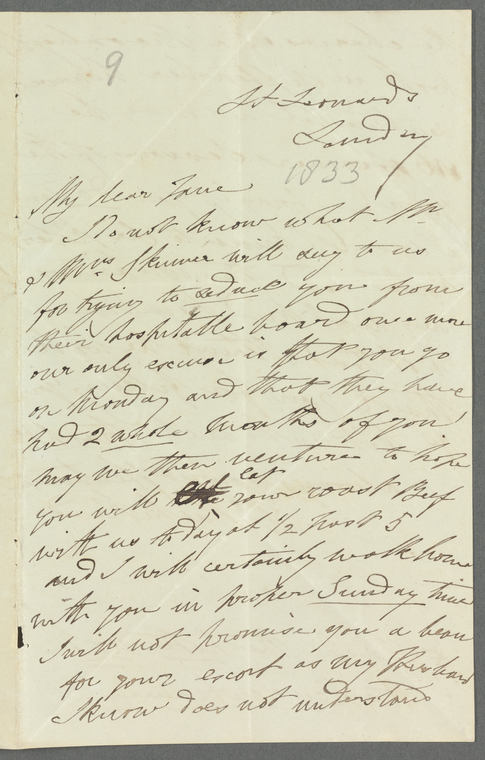 9
St Leonards
Sunday
1833
My dear Jane
I do not know what Mr
& Mrs Skinner will say to us
for trying to seduce you from
their hospitable board once more
our only excuse is that you go
on Monday and that they have
had 2 whole months of you!
may we then venture to hope
you will eat
your roast Beef
with us today at 1/2 past 5
and I will certainly walk home
with you in proper Sunday time
I will not promise you a beau
for your escort as my Husband
I know does not understand